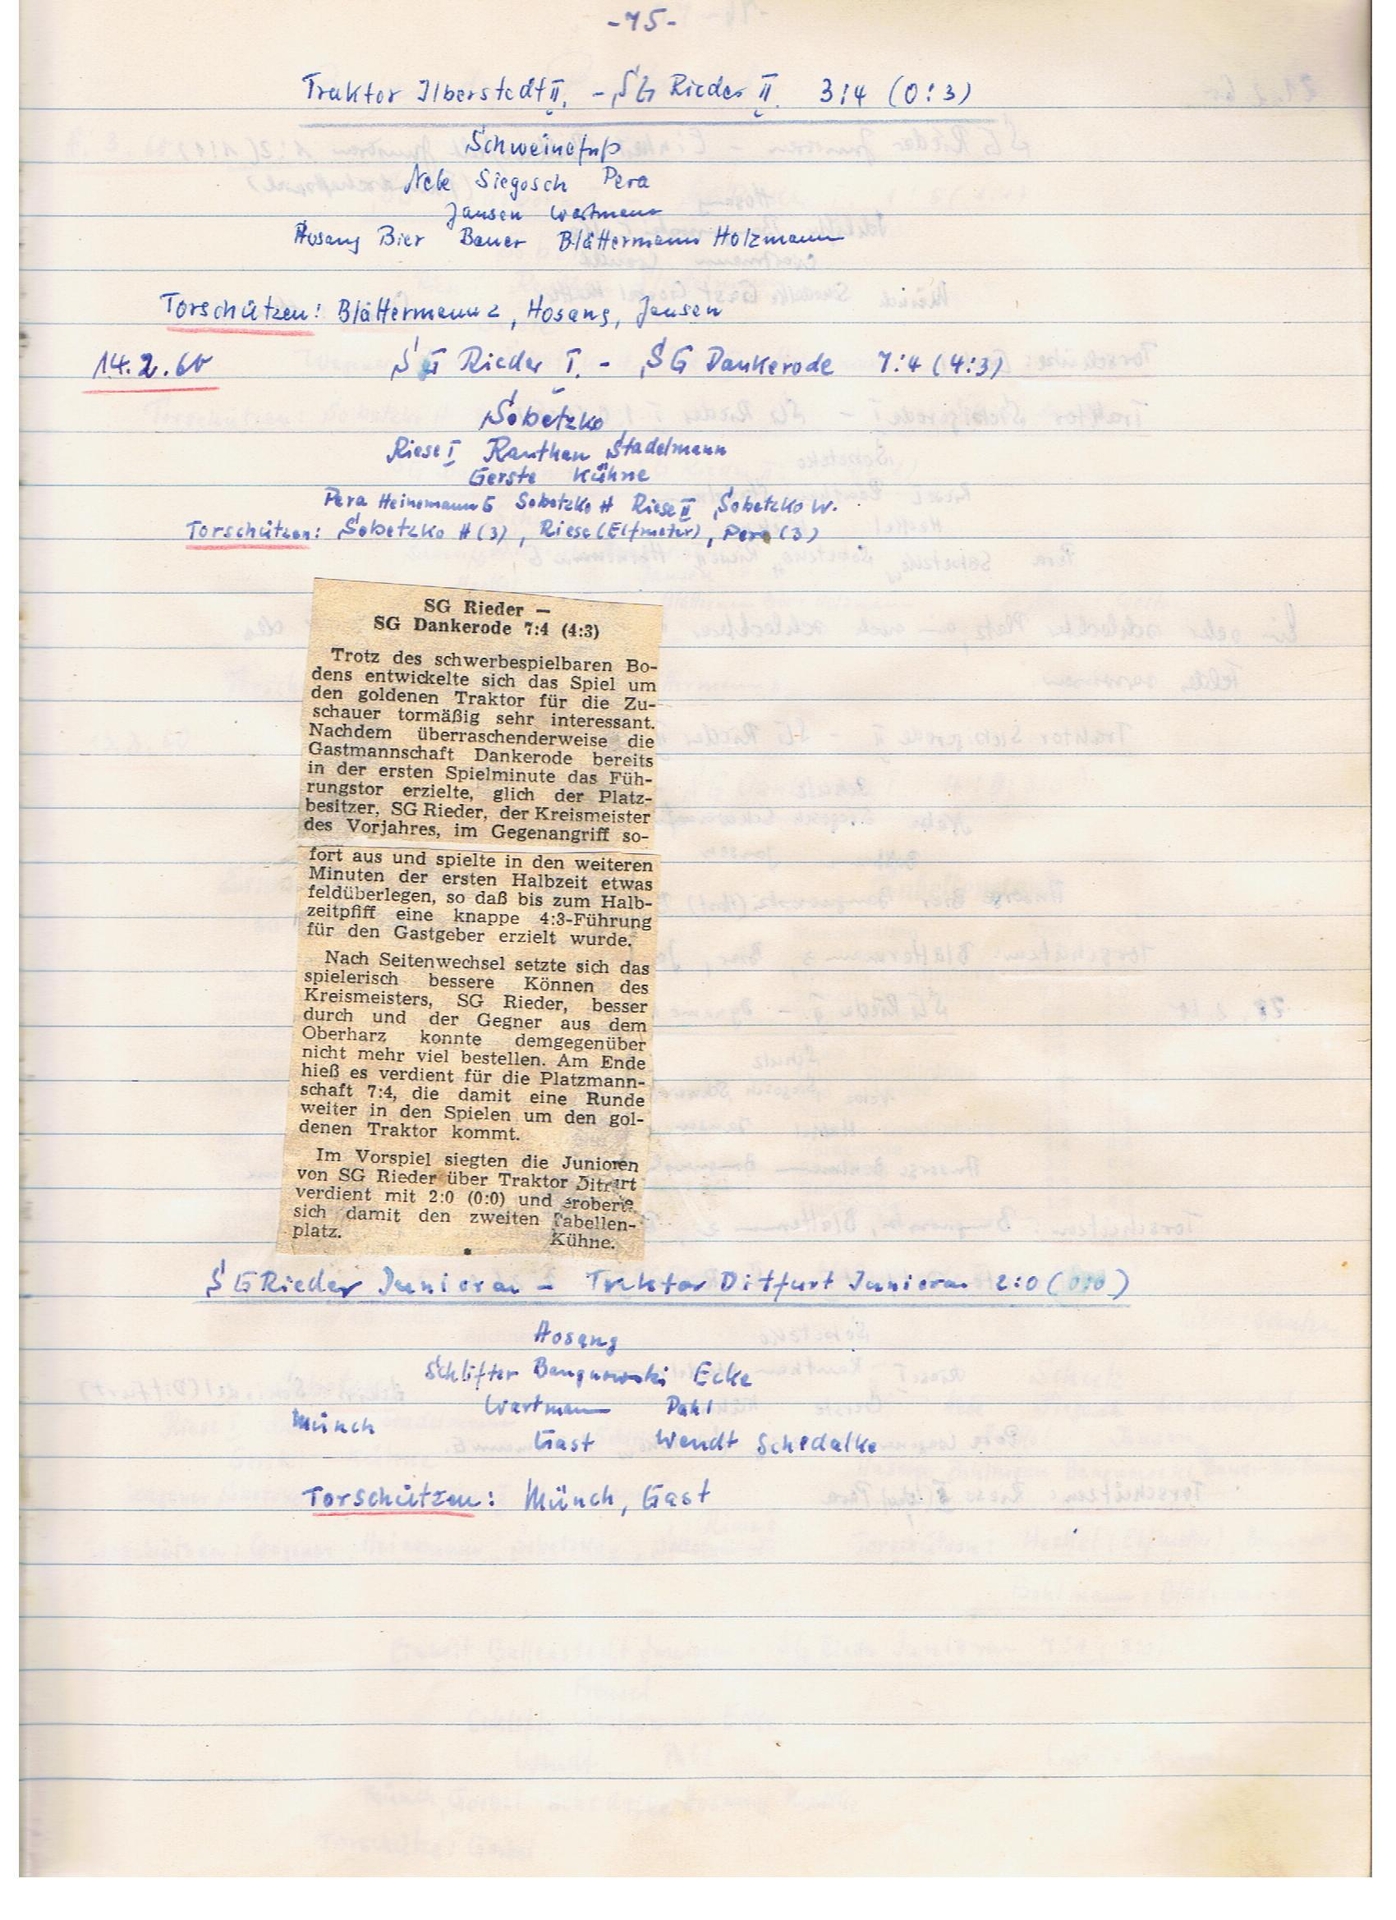 -15-
Traktor Ilberstedt II. - SG Rieder II. 3:4 (0:3)
Schweinefuß
Nele Siegosch Pera
Jansen Wartmann
Hosang Bier Bauer Blättermann Holzmann
Torschützen: Blättermann 2, Hosang, Jansen
14.2.60 SG Rieder I. - SG Dankerode 7:4 (4:3)
Sobetzko
Riese I Ranthan Stadelmann
Gerste Kühne
Pera Heinemann G Sobetzko H Riese II Sobetzko W.
Torschützen: Sobetzko H (3), Riese (Elfmeter), Pera (3)
SG Rieder —
SG Dankerode 7:4 (4:3)
Trotz des schwerbespielbaren Bo-
dens entwickelte sich das Spiel um
den goldenen Traktor für die Zu-
schauer tormäßig sehr interessant.
Nachdem überraschenderweise die
Gastmannschaft Dankerode bereits
in der ersten Spielminute das Füh-
rungstor erzielte, glich der Platz-
besitzer, SG Rieder, der Kreismeister
des Vorjahres, im Gegenangriff so-
fort aus und spielte in den weiteren
Minuten der ersten Halbzeit etwas
feldüberlegen, so daß bis zum Halb-
zeitpfiff eine knappe 4:3-Führung
für den Gastgeber erzielt wurde.
Nach Seitenwechsel setzte sich das
spielerisch bessere Können des
Kreismeisters, SG Rieder, besser
durch und der Gegner aus dem
Oberharz konnte demgegenüber
nicht mehr viel bestellen. Am Ende
hieß es verdient für die Platzmann-
schaft 7:4, die damit eine Runde
weiter in den Spielen um den gol-
denen Traktor kommt.
Im Vorspiel siegten die Junioren
von SG Rieder über Traktor Ditfurt
verdient mit 2:0 (0:0) und eroberte
sich damit den zweiten Tabellen-
platz. Kühne.
SG Rieder Junioren - Traktor Ditfurt Junioren 2:0 (0:0)
Hosang
Schlifter Ecke
Wartmann Dahl
Münch Gast Wendt Schedalke
Torschützen: Münch, Gast